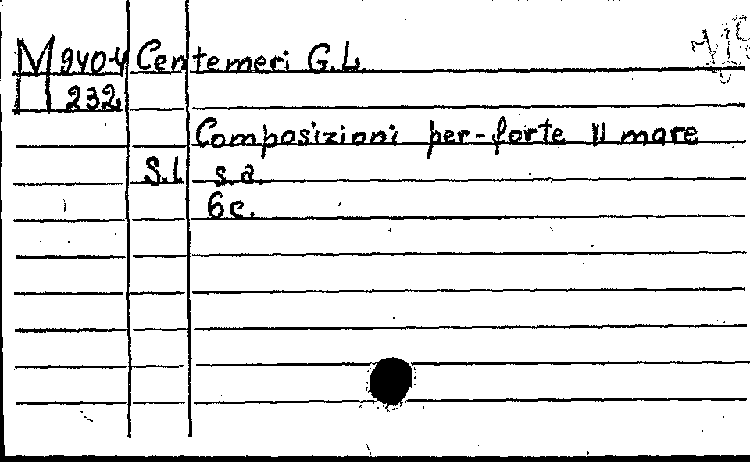 M 940-4 Centemeri G.L.
232
Composizioni per-forte Il mare
S.l. s.a.
6c.